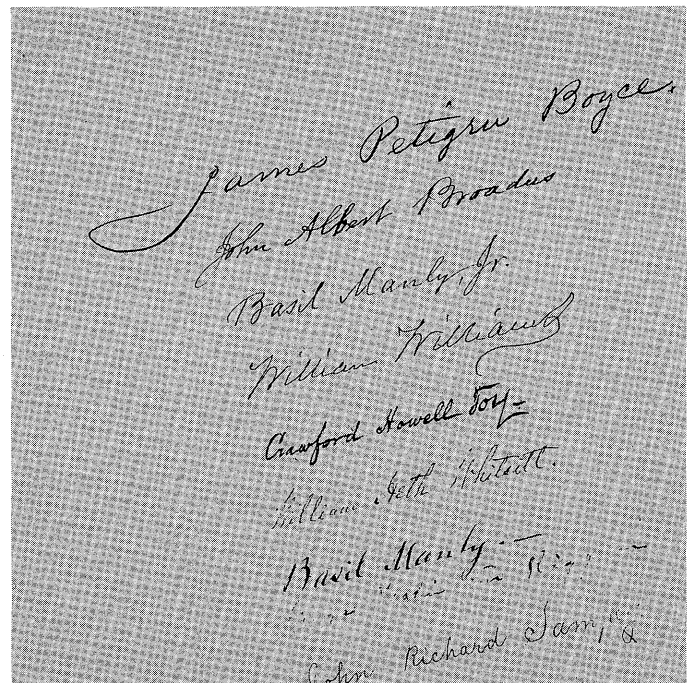 James Petigru Boyce.
John Albert Broadus
Basil Manly, Jr.
William Williams
Crawford Howell Toy
William Heth Whitsitt.
Basil Manly
John Richard